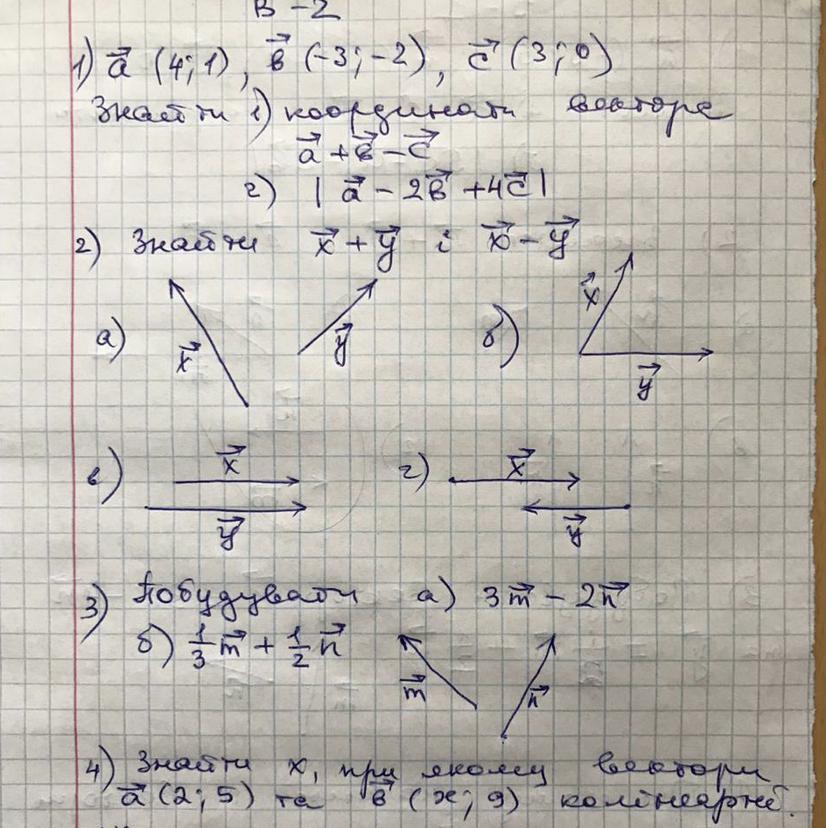 В-2
1) a⃗ (4; 1), в⃗ (-3; -2), c⃗ (3; 0)
Знайти 1) координати вектора
a⃗ + в⃗ - c⃗
2) | a⃗ - 2в⃗ + 4c⃗ |
2) Знайти x⃗ + y⃗ і x⃗ - y⃗
а) x⃗ y⃗ б) x⃗ y⃗
в) x⃗ y⃗ г) x⃗ y⃗
3) Побудувати а) 3m⃗ - 2n⃗
б) 1/3 m⃗ + 1/2 n⃗
m⃗ n⃗
4) Знайти x, при якому вектори
a⃗ (2; 5) та в⃗ (x; 9) колінеарні.